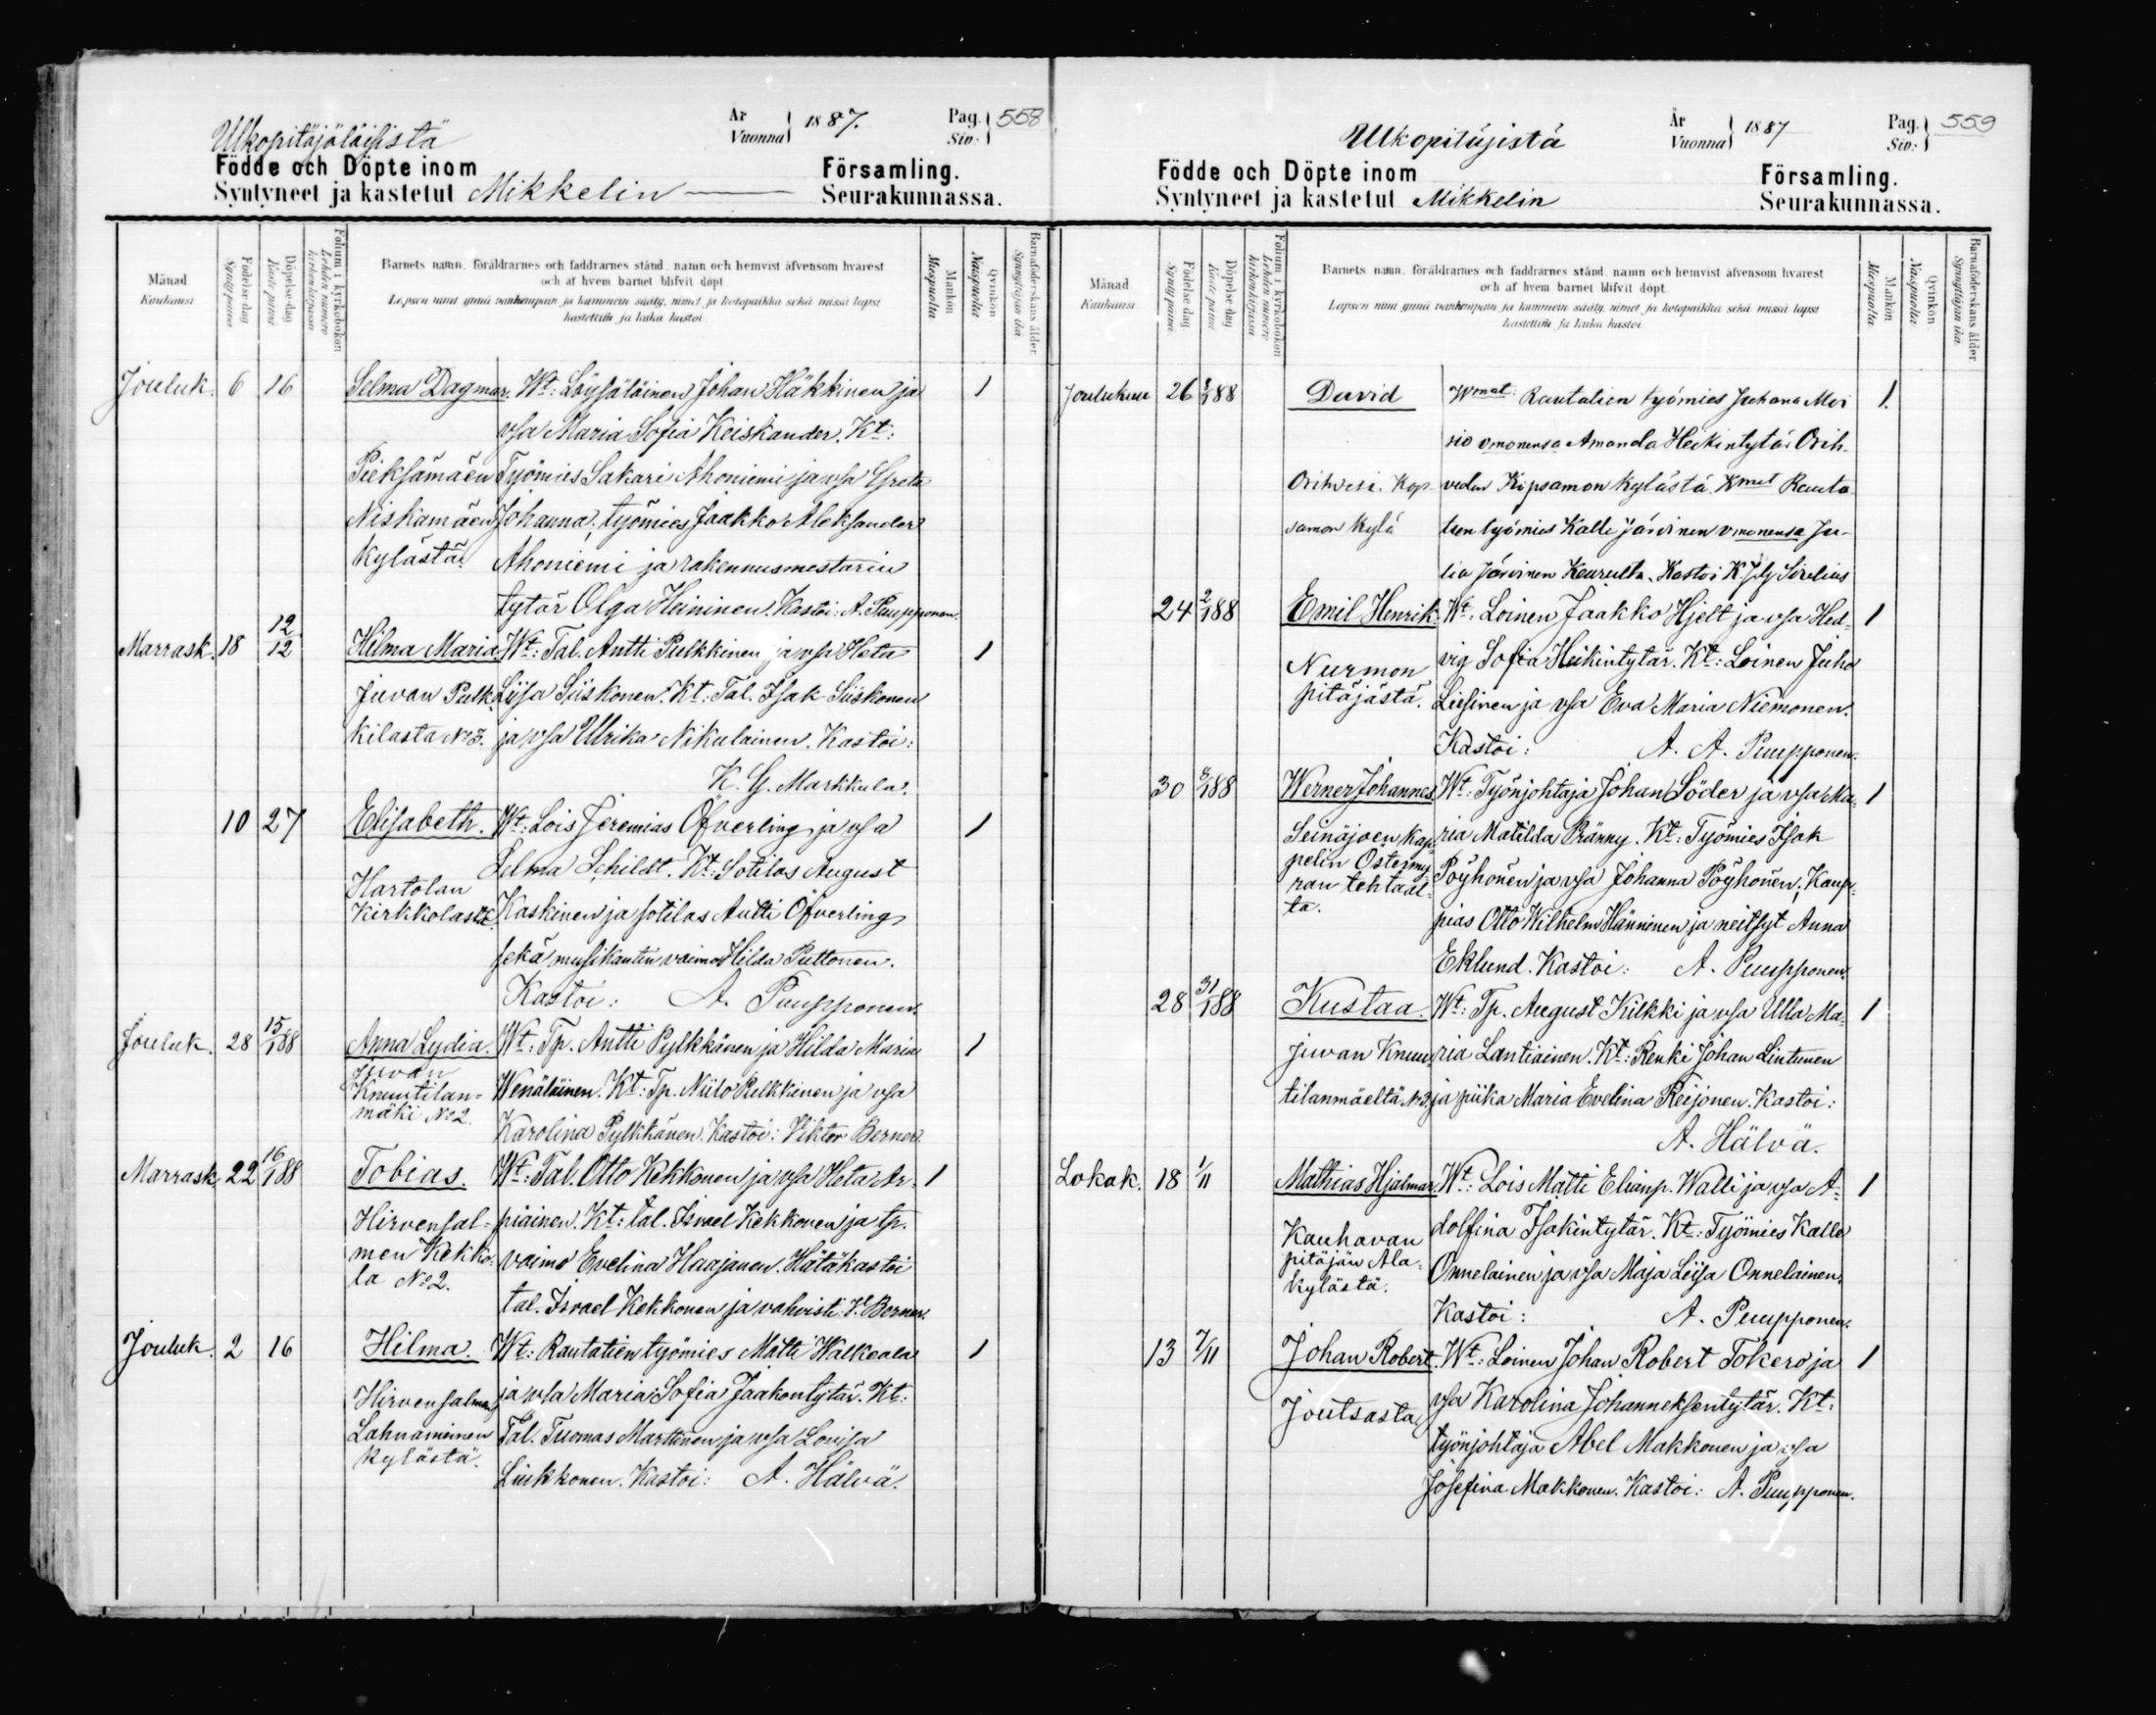 Ulkopitäjäläisistä
År
Vuonna
1887.
Pag.
Siv:
558
Födde och Döpte inom
Församling.
Syntyneet ja kastetut Mikkelin
Seurakunnassa.
Månad
Kuukausi
Födelse dag
Synty päivä
Döpelse dag
Kaste päivä
Folium i kyrkobokon
Lehden numero
kirkonkirjassa
Barnets namn, föräldrarnes och faddrarnes stånd, namn och hemvist äfvensom hvarest
och af hvem barnet blifvit döpt.
Lapsen nimi ynnä vanhempain ja kummein sääty, nimet ja kotopaikka sekä missä lapsi
kastettiin ja kuka kastoi
Mankön
Miespuolta
Qvinkön
Naispuolta
Barnaföderskans ålder.
Synnyttäjän ikä.
Jouluk. 6 16 Selma Dagmar. Wt: Löysäläinen Johan Häkkinen ja 1
vsa Maria Sofia Keiskander. Kt:
Pieksämäen Työmies Sakari Ahoniemi ja vsa Greta
Niskamäen Johanna; työmies Jaakko Aleksander
kylästä. Ahoniemi ja rakennusmestarin
tytär Olga Heininen. Kastoi: A. Puupponen.
Marrask. 18 12/12 Hilma Maria Wt: Tal. Antti Pulkkinen ja vsa Heta 1
Juvan Pulk Liisa Siiskonen. Kt: Tal. Isak Siiskonen
kilasta No 3. ja vsa Ulrika Nikulainen. Kastoi:
K. G. Markkula.
10 27 Elisabeth. Wt: Lois Jeremias Öfverling ja vsa 1
Selma Schildt. Kt: Sotilas August
Hartolan
Kirkkolasta. Kaskinen ja sotilas Antti Öfverling
sekä musikantin vaimo Hilda Puttonen.
Kastoi: A. Puupponen.
Jouluk. 28 15/188 Anna Lydia. Wt: Tp. Antti Pylkkänen ja Hilda Maria 1
Juvan
Knuutilan-
mäki No 2. Wenäläinen. Kt: Tp. Niilo Pelkkinen ja vsa
Karolina Pylkkänen. Kastoi: Viktor Berner.
Marrask. 22 16/188 Tobias. Wt: Tal. Otto Kekkonen ja vsa Heta Ar- 1
Hirvensal- piainen. Kt: tal. Israel Kekkonen ja tp.
men Kekko- vaimo Evelina Haajanen. Hätäkastoi
la No 2. tal. Israel Kekkonen ja vahvisti V. Berner.
Jouluk. 2 16 Hilma. Wt: Rautatien työmies Matti Walkeala 1
Hirvensalmen ja vsa Maria Sofia Jaakontytär. Kt:
Lahnaniemen Tal. Tuomas Marttinen ja vsa Lovisa
kylästä. Liukkonen. Kastoi: A. Hälvä.
Ulkopitäjistä
År
Vuonna
1887
Pag.
Siv:
559
Födde och Döpte inom
Församling.
Syntyneet ja kastetut Mikkelin
Seurakunnassa.
Månad
Kuukausi
Födelse dag
Synty päivä
Döpelse dag
Kaste päivä
Folium i kyrkobokon
Lehden numero
kirkonkirjassa
Barnets namn, föräldrarnes och faddrarnes stånd, namn och hemvist äfvensom hvarest
och af hvem barnet blifvit döpt.
Lapsen nimi ynnä vanhempain ja kummein sääty, nimet ja kotopaikka sekä missä lapsi
kastettiin ja kuka kastoi
Mankön
Miespuolta
Qvinkön
Naispuolta
Barnaföderskans ålder.
Synnyttäjän ikä.
Joulukuu 26 1/188 David Wmat: Rautatien työmies Juhana Moi 1.
sio vmonensa Amanda Heikintytär Orih-
Orihvesi. Kop- veden Kopsamon kylästä. Kmat Rauta
samon kylä tien työmies Kalle Järvinen vmonensa Ju-
lia Järvinen Keurulta. Kastoi Sirelius
24 2/188 Emil Henrik. Wt: Loinen Jaakko Hjelt ja vsa Hed- 1
Nurmon vig Sofia Heikintytär. Kt: Loinen Juho
pitäjästä. Liisinen ja vsa Eva Maria Niemonen.
Kastoi: A. A. Puupponen.
30 8/188 Werner Johannes. Wt: Työnjohtaja Johan Söder ja vsa Ma- 1
Seinäjoen kap- ria Matilda Pränny. Kt: Työmies Isak
pelin Östermy- Pöyhönen ja vsa Johanna Pöyhönen; Kaup-
ran tehtaal-
ta. pias Otto Wilhelm Hänninen ja neitsyt Anna
Eklund. Kastoi: A. Puupponen.
28 31/188 Kustaa. Wt: Tp. August Kilkki ja vsa Ulla Ma- 1
Juvan Knuu- ria Lantiainen. Kt: Renki Johan Lintunen
tilanmäeltä No 2. ja piika Maria Evelina Reijonen. Kastoi:
A. Hälvä.
Lokak. 18 1/11 Mathias Hjalmar. Wt: Lois Matti Elianp. Walli ja vsa A- 1
Kauhavan dolfina Isakintytär. Kt: Työmies Kalle
pitäjän Ala- Onnelainen ja vsa Maja Liisa Onnelainen.
kylästä.
Kastoi: A. Puupponen.
13 7/11 Johan Robert. Wt: Loinen Johan Robert Tokero ja 1
Joutsasta vsa Karolina Johanneksentytär. Kt:
työnjohtaja Abel Makkonen ja vsa
Josefina Makkonen. Kastoi: A. Puupponen.